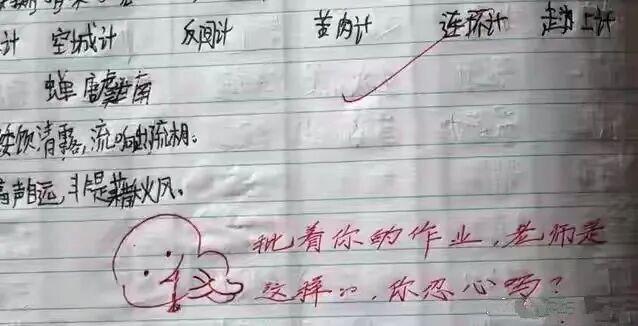 计 空城计 反间计 苦肉计 连环计 走为上计
蝉 唐虞世南
饮清露,流响出疏桐。
高声自远,非是藉秋风。
批着你的作业,老师是
这样的,你忍心吗?